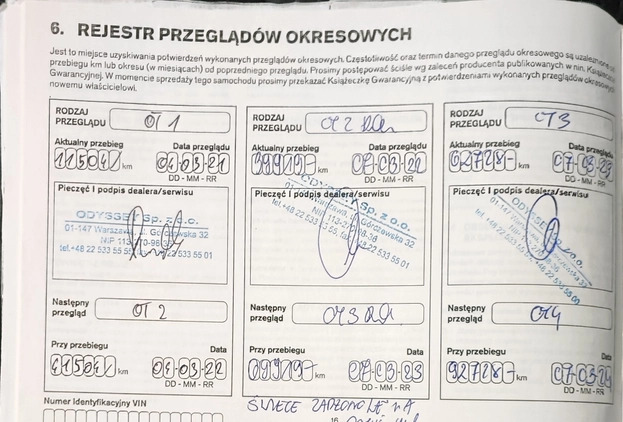 6. REJESTR PRZEGLĄDÓW OKRESOWYCH
Jest to miejsce uzyskiwania potwierdzeń wykonanych przeglądów okresowych. Częstotliwość oraz termin danego przeglądu okresowego są uzależnione od
przebiegu km lub okresu (w miesiącach) od poprzedniego przeglądu. Prosimy postępować ściśle wg zaleceń producenta publikowanych w nin. Książeczce
Gwarancyjnej. W momencie sprzedaży tego samochodu prosimy przekazać Książeczkę Gwarancyjną z potwierdzeniami wykonanych przeglądów okresowych
nowemu właścicielowi.
RODZAJ PRZEGLĄDU OT 1
Aktualny przebieg Data przeglądu
11504 km 04-03-21
DD - MM - RR
Pieczęć i podpis dealera/serwisu
ODYSSEY Sp. z o.o.
01-147 Warszawa, ul. Górczewska 32
tel. +48 22 533 55 01
Następny przegląd OT 2
Przy przebiegu Data
41504 km 04-03-22
DD - MM - RR
Numer Identyfikacyjny VIN
RODZAJ PRZEGLĄDU OT2
Aktualny przebieg Data przeglądu
39919 km 07-03-22
DD - MM - RR
Pieczęć i podpis dealera/serwisu
ODYSSEY Sp. z o.o.
01-147 Warszawa, ul. Górczewska 32
+48 22 533 55 01
Następny przegląd OT3
Przy przebiegu Data
69919 km 07-03-23
DD - MM - RR
ŚWIECE
RODZAJ PRZEGLĄDU OT3
Aktualny przebieg Data przeglądu
62728 km 07-03-23
DD - MM - RR
Pieczęć i podpis dealera/serwisu
ODYSSEY Sp. z o.o.
01-147
+48 22 533 55 00
Następny przegląd OT4
Przy przebiegu Data
92728 km 07-03-24
DD - MM - RR